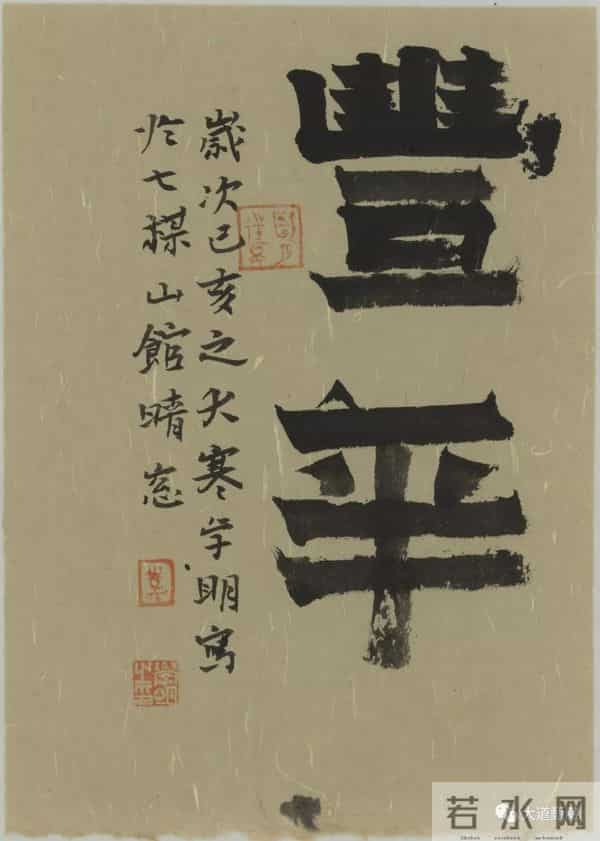 豐年
歲次己亥之大寒学明寫
於七楳山館晴窓
若水网